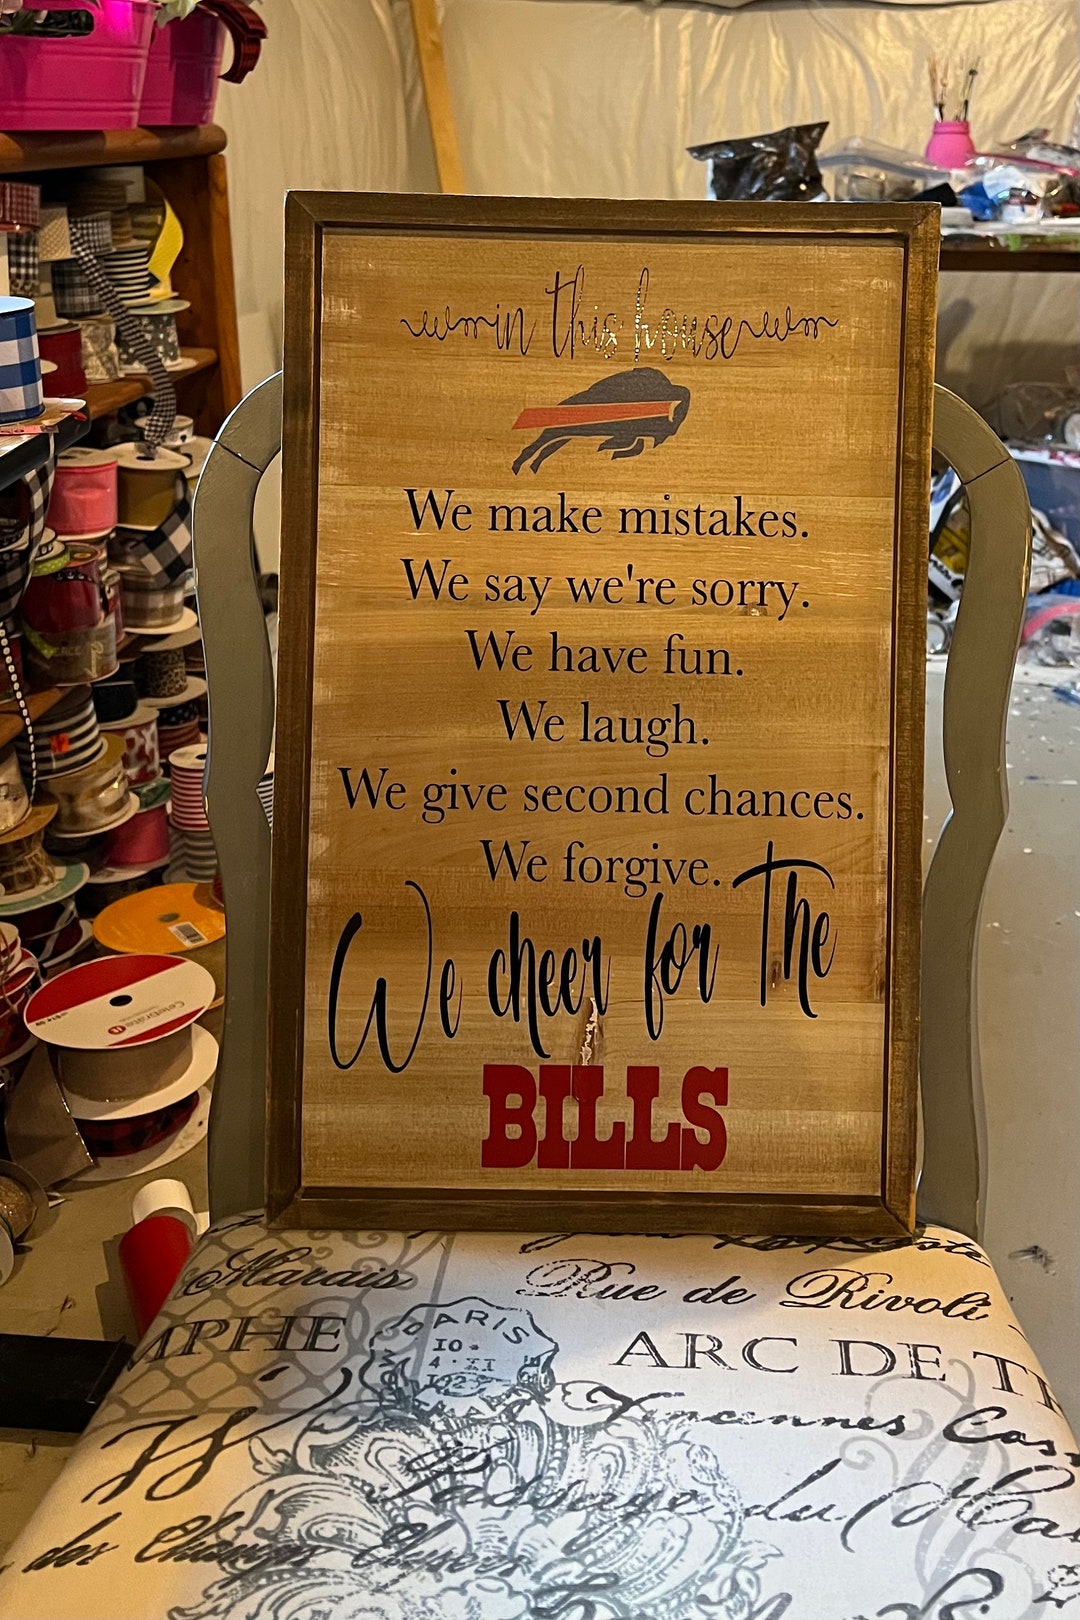 in this house
We make mistakes.
We say we're sorry.
We have fun.
We laugh.
We give second chances.
We forgive.
We cheer for The
BILLS
Celebrate It
Marais
Rue de Rivoli
MPHE
PARIS
10
ARC DE T
Vincennes Cos
Passage du Ha
des Champs Elysees